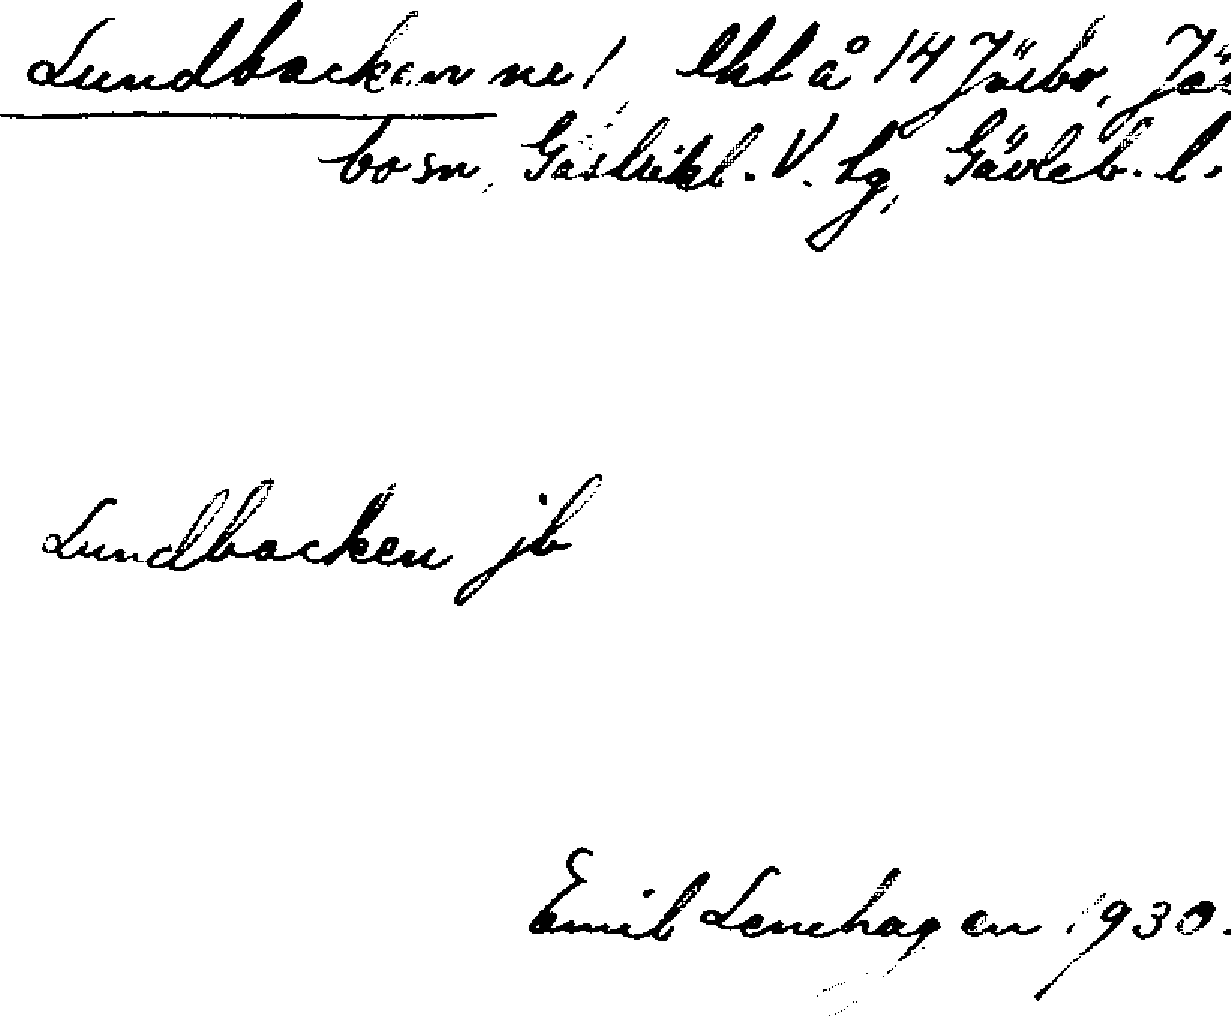 Lundbacken ne, lht å 14 Järbo, Jär
bo sn, Gästrikl. V. tg, Gävleb. l.
Lundbacken jb
Emil Lenehagen 1930.